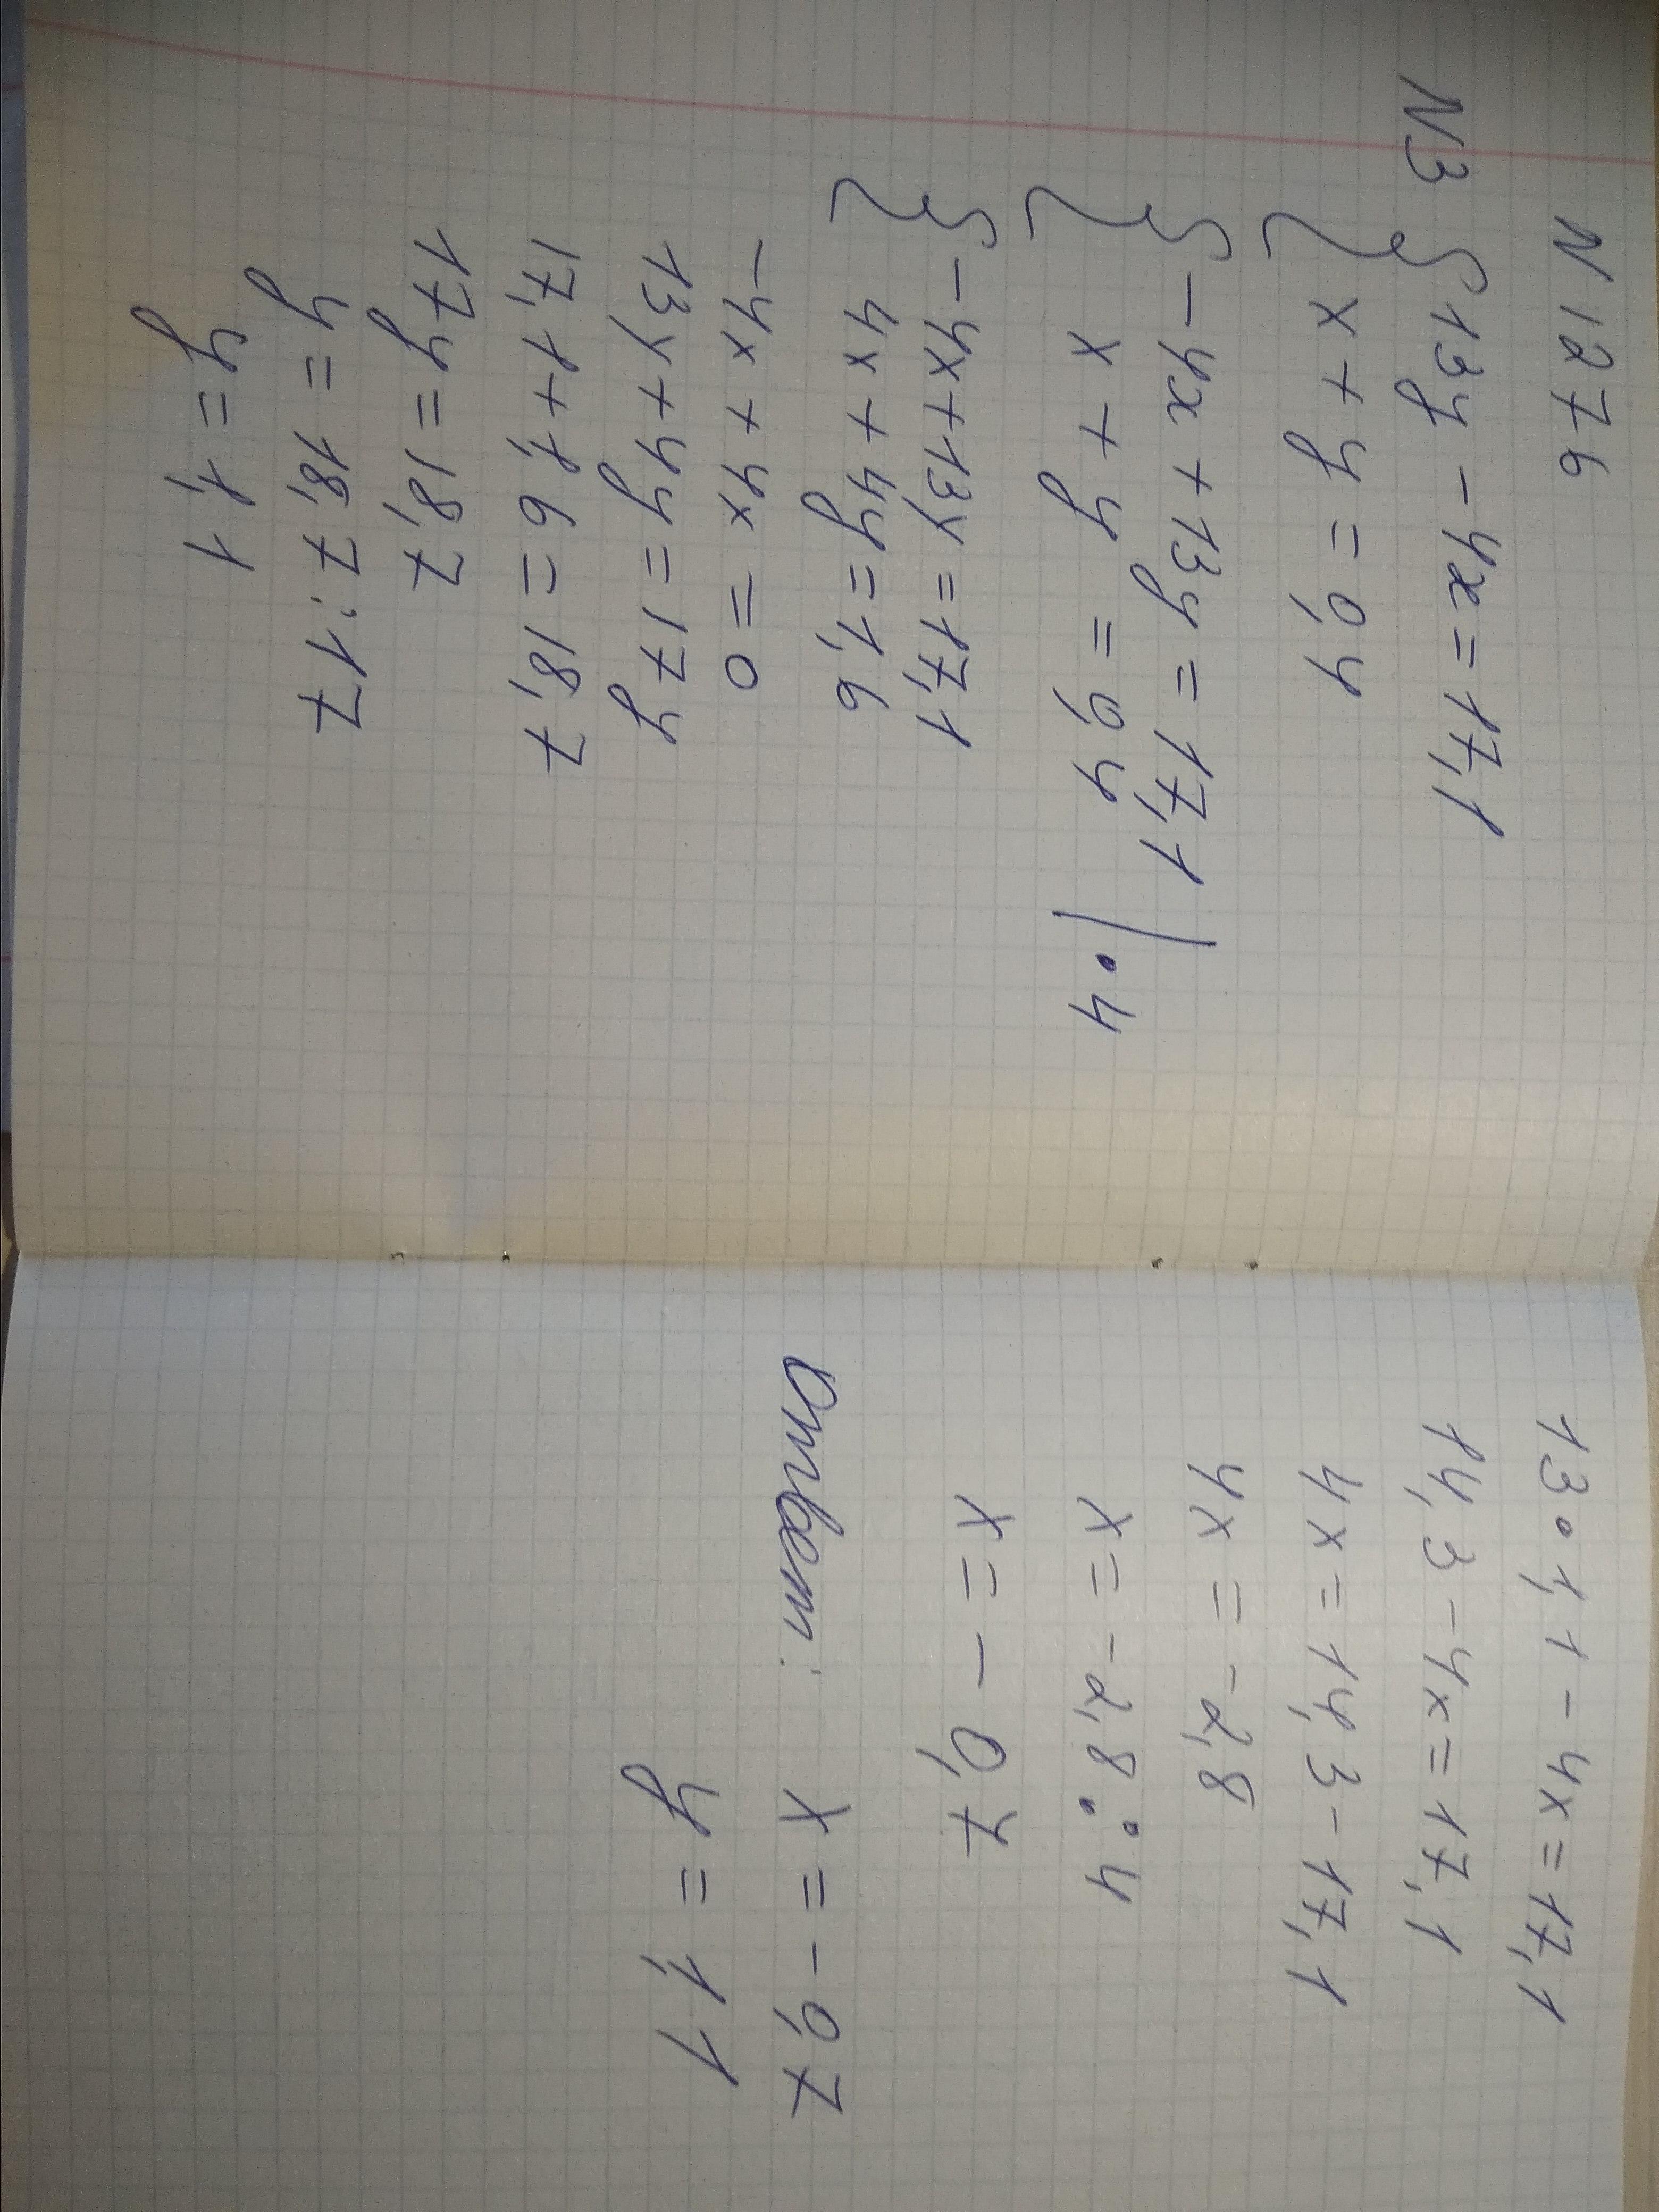 N 1276
N3 { 13y - 4x = 17,1
x + y = 0,4
{ -4x + 13y = 17,1
x + y = 0,4 | • 4
{ -4x + 13y = 17,1
4x + 4y = 1,6
-4x + 4x = 0
13y + 4y = 17y
17,1 + 1,6 = 18,7
17y = 18,7
y = 18,7 : 17
y = 1,1
13 • 1,1 - 4x = 17,1
14,3 - 4x = 17,1
4x = 14,3 - 17,1
4x = -2,8
x = -2,8 : 4
x = - 0,7
Ответ: x = - 0,7
y = 1,1